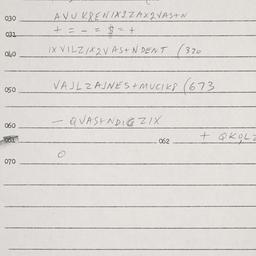 030 AVUKPENIXSZAX2VAS+N
031 + = - = $ = +
040 IXVILZIX2VAS+NDENT (390
050 VAJLZAJNES+MUCIKP (673
060 - QVAS+NDIGZIX
061 062 + QKQLZ
0
070